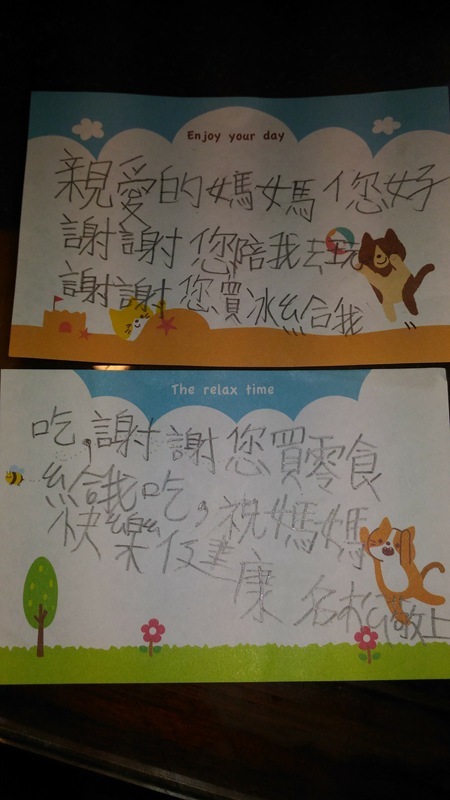 Enjoy your day
親愛的媽媽您好
謝謝您陪我去玩
謝謝您買冰給我
The relax time
吃,謝謝您買零食
給我吃,祝媽媽
快樂健康
名松敬上